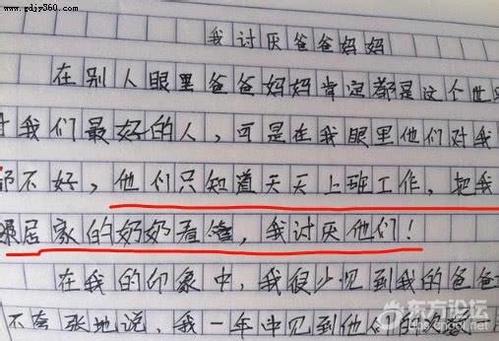 www.gdjy360.com
我讨厌爸爸妈妈
在别人眼里爸爸妈妈肯定都是这个世
对我们最好的人，可是在我眼里他们对我
都不好，他们只知道天天上班工作，把我
居家的奶奶看管，我讨厌他们！
在我的印象中，我很少见到我的爸爸
不夸张地说，我一年中见到他们的次数
东方论坛